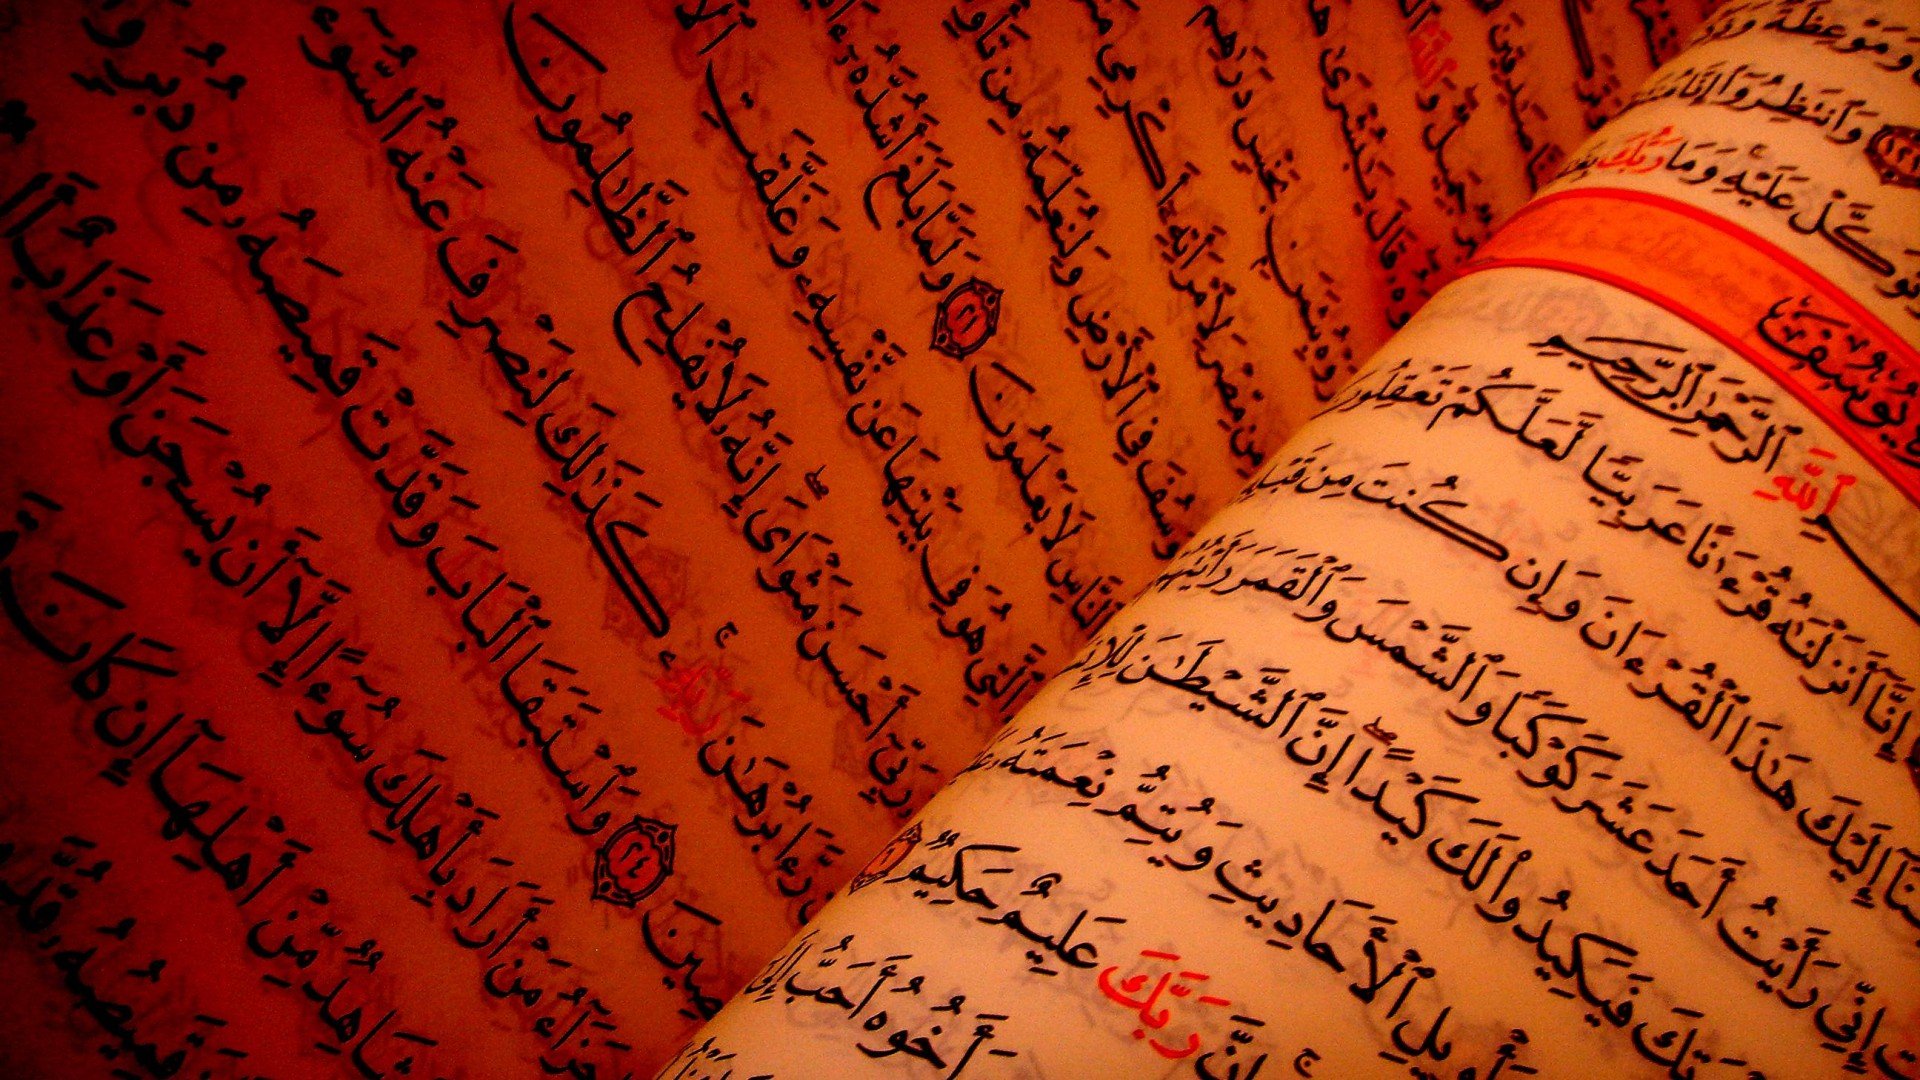 وَمَوْعِظَةٌ
وَٱنتَظِرُوٓا۟ إِنَّا
وَتَوَكَّلْ عَلَيْهِ وَمَا رَبُّكَ
يُوسُفَ
ٱللَّهِ ٱلرَّحْمَٰنِ ٱلرَّحِيمِ
إِنَّآ أَنزَلْنَٰهُ قُرْءَٰنًا عَرَبِيًّا لَّعَلَّكُمْ تَعْقِلُونَ
إِلَيْكَ هَٰذَا ٱلْقُرْءَانَ وَإِن كُنتَ مِن قَبْلِهِ
إِنِّى رَأَيْتُ أَحَدَ عَشَرَ كَوْكَبًا وَٱلشَّمْسَ وَٱلْقَمَرَ رَأَيْتُهُمْ
فَيَكِيدُوا۟ لَكَ كَيْدًا إِنَّ ٱلشَّيْطَٰنَ
ٱلْأَحَادِيثِ وَيُتِمُّ نِعْمَتَهُۥ
إِنَّ رَبَّكَ عَلِيمٌ حَكِيمٌ ٦
أَخُوهُ أَحَبُّ إِلَىٰ
صَٰدِقِينَ
جَمِيلٌ وَٱللَّهُ
قَالَ يَٰبُشْرَىٰ
بِثَمَنٍۭ بَخْسٍ دَرَٰهِمَ
مِن مِّصْرَ لِٱمْرَأَتِهِۦٓ أَكْرِمِى
يُوسُفَ فِى ٱلْأَرْضِ وَلِنُعَلِّمَهُۥ مِن
ٱلنَّاسِ لَا يَعْلَمُونَ ٢١ وَلَمَّا بَلَغَ أَشُدَّهُۥٓ
ٱلَّتِى هُوَ فِى بَيْتِهَا عَن نَّفْسِهِۦ وَغَلَّقَتِ
رَبِّىٓ أَحْسَنَ مَثْوَاىَ إِنَّهُۥ لَا يُفْلِحُ ٱلظَّٰلِمُونَ
رَّءَا بُرْهَٰنَ رَبِّهِۦ كَذَٰلِكَ لِنَصْرِفَ عَنْهُ ٱلسُّوٓءَ
٢٤ وَٱسْتَبَقَا ٱلْبَابَ وَقَدَّتْ قَمِيصَهُۥ مِن دُبُرٍ
جَزَآءُ مَنْ أَرَادَ بِأَهْلِكَ سُوٓءًا إِلَّآ أَن يُسْجَنَ أَوْ عَذَابٌ
شَاهِدٌ مِّنْ أَهْلِهَآ إِن كَانَ
قَمِيصُهُۥ قُدَّ